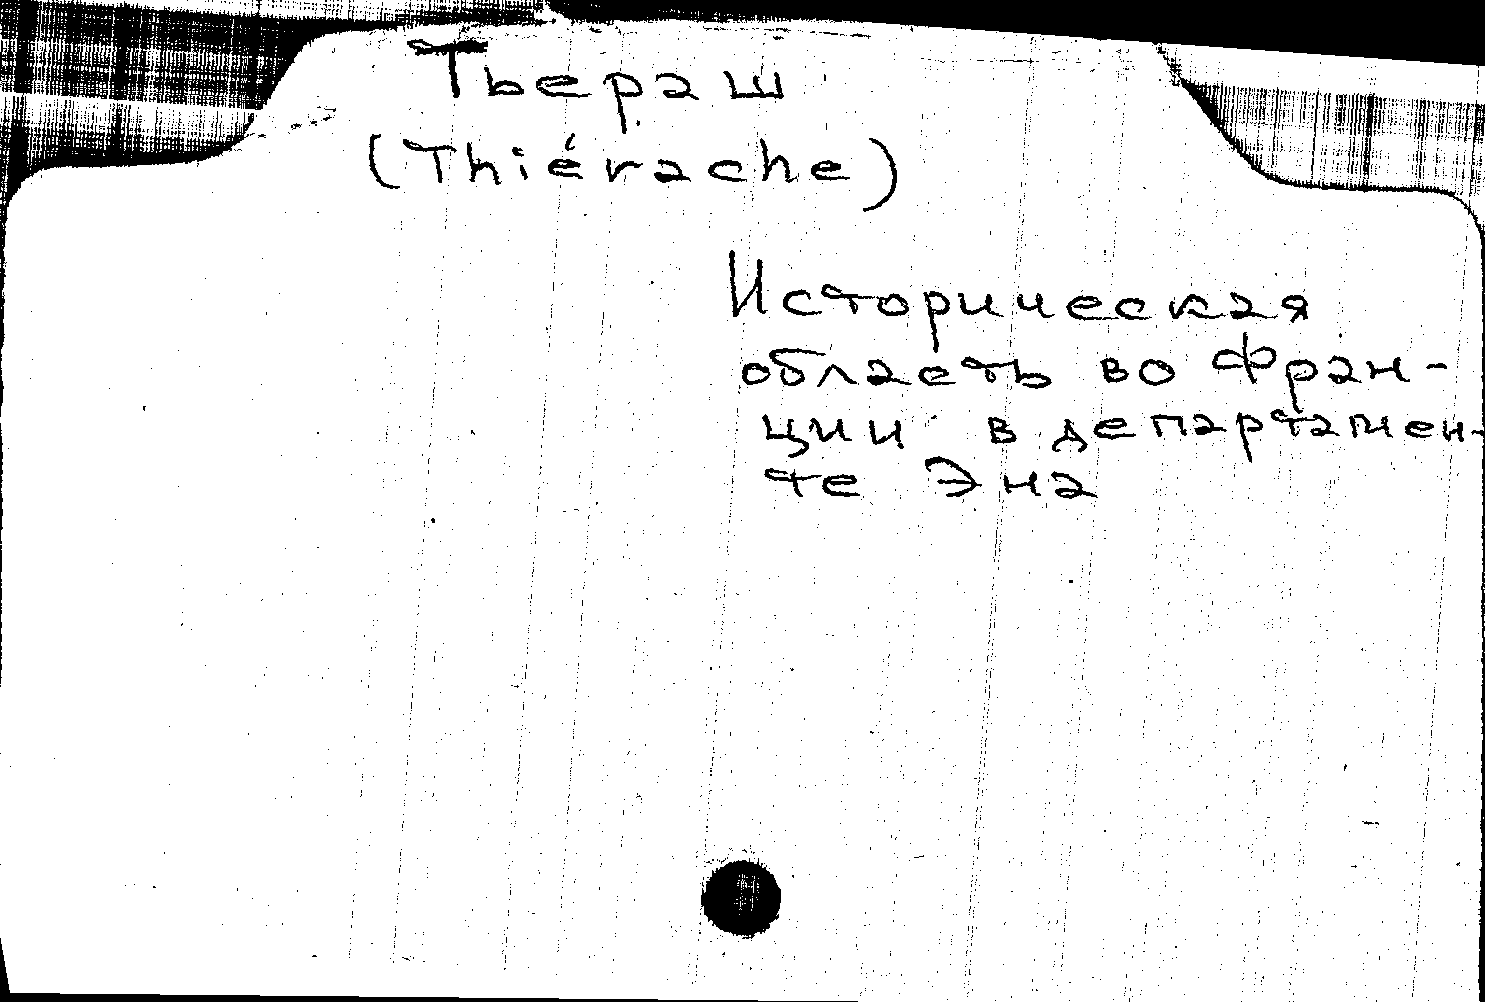 Тьераш
(Thiérache)
Историческая
область во Фран-
ции в департамен-
те Эна